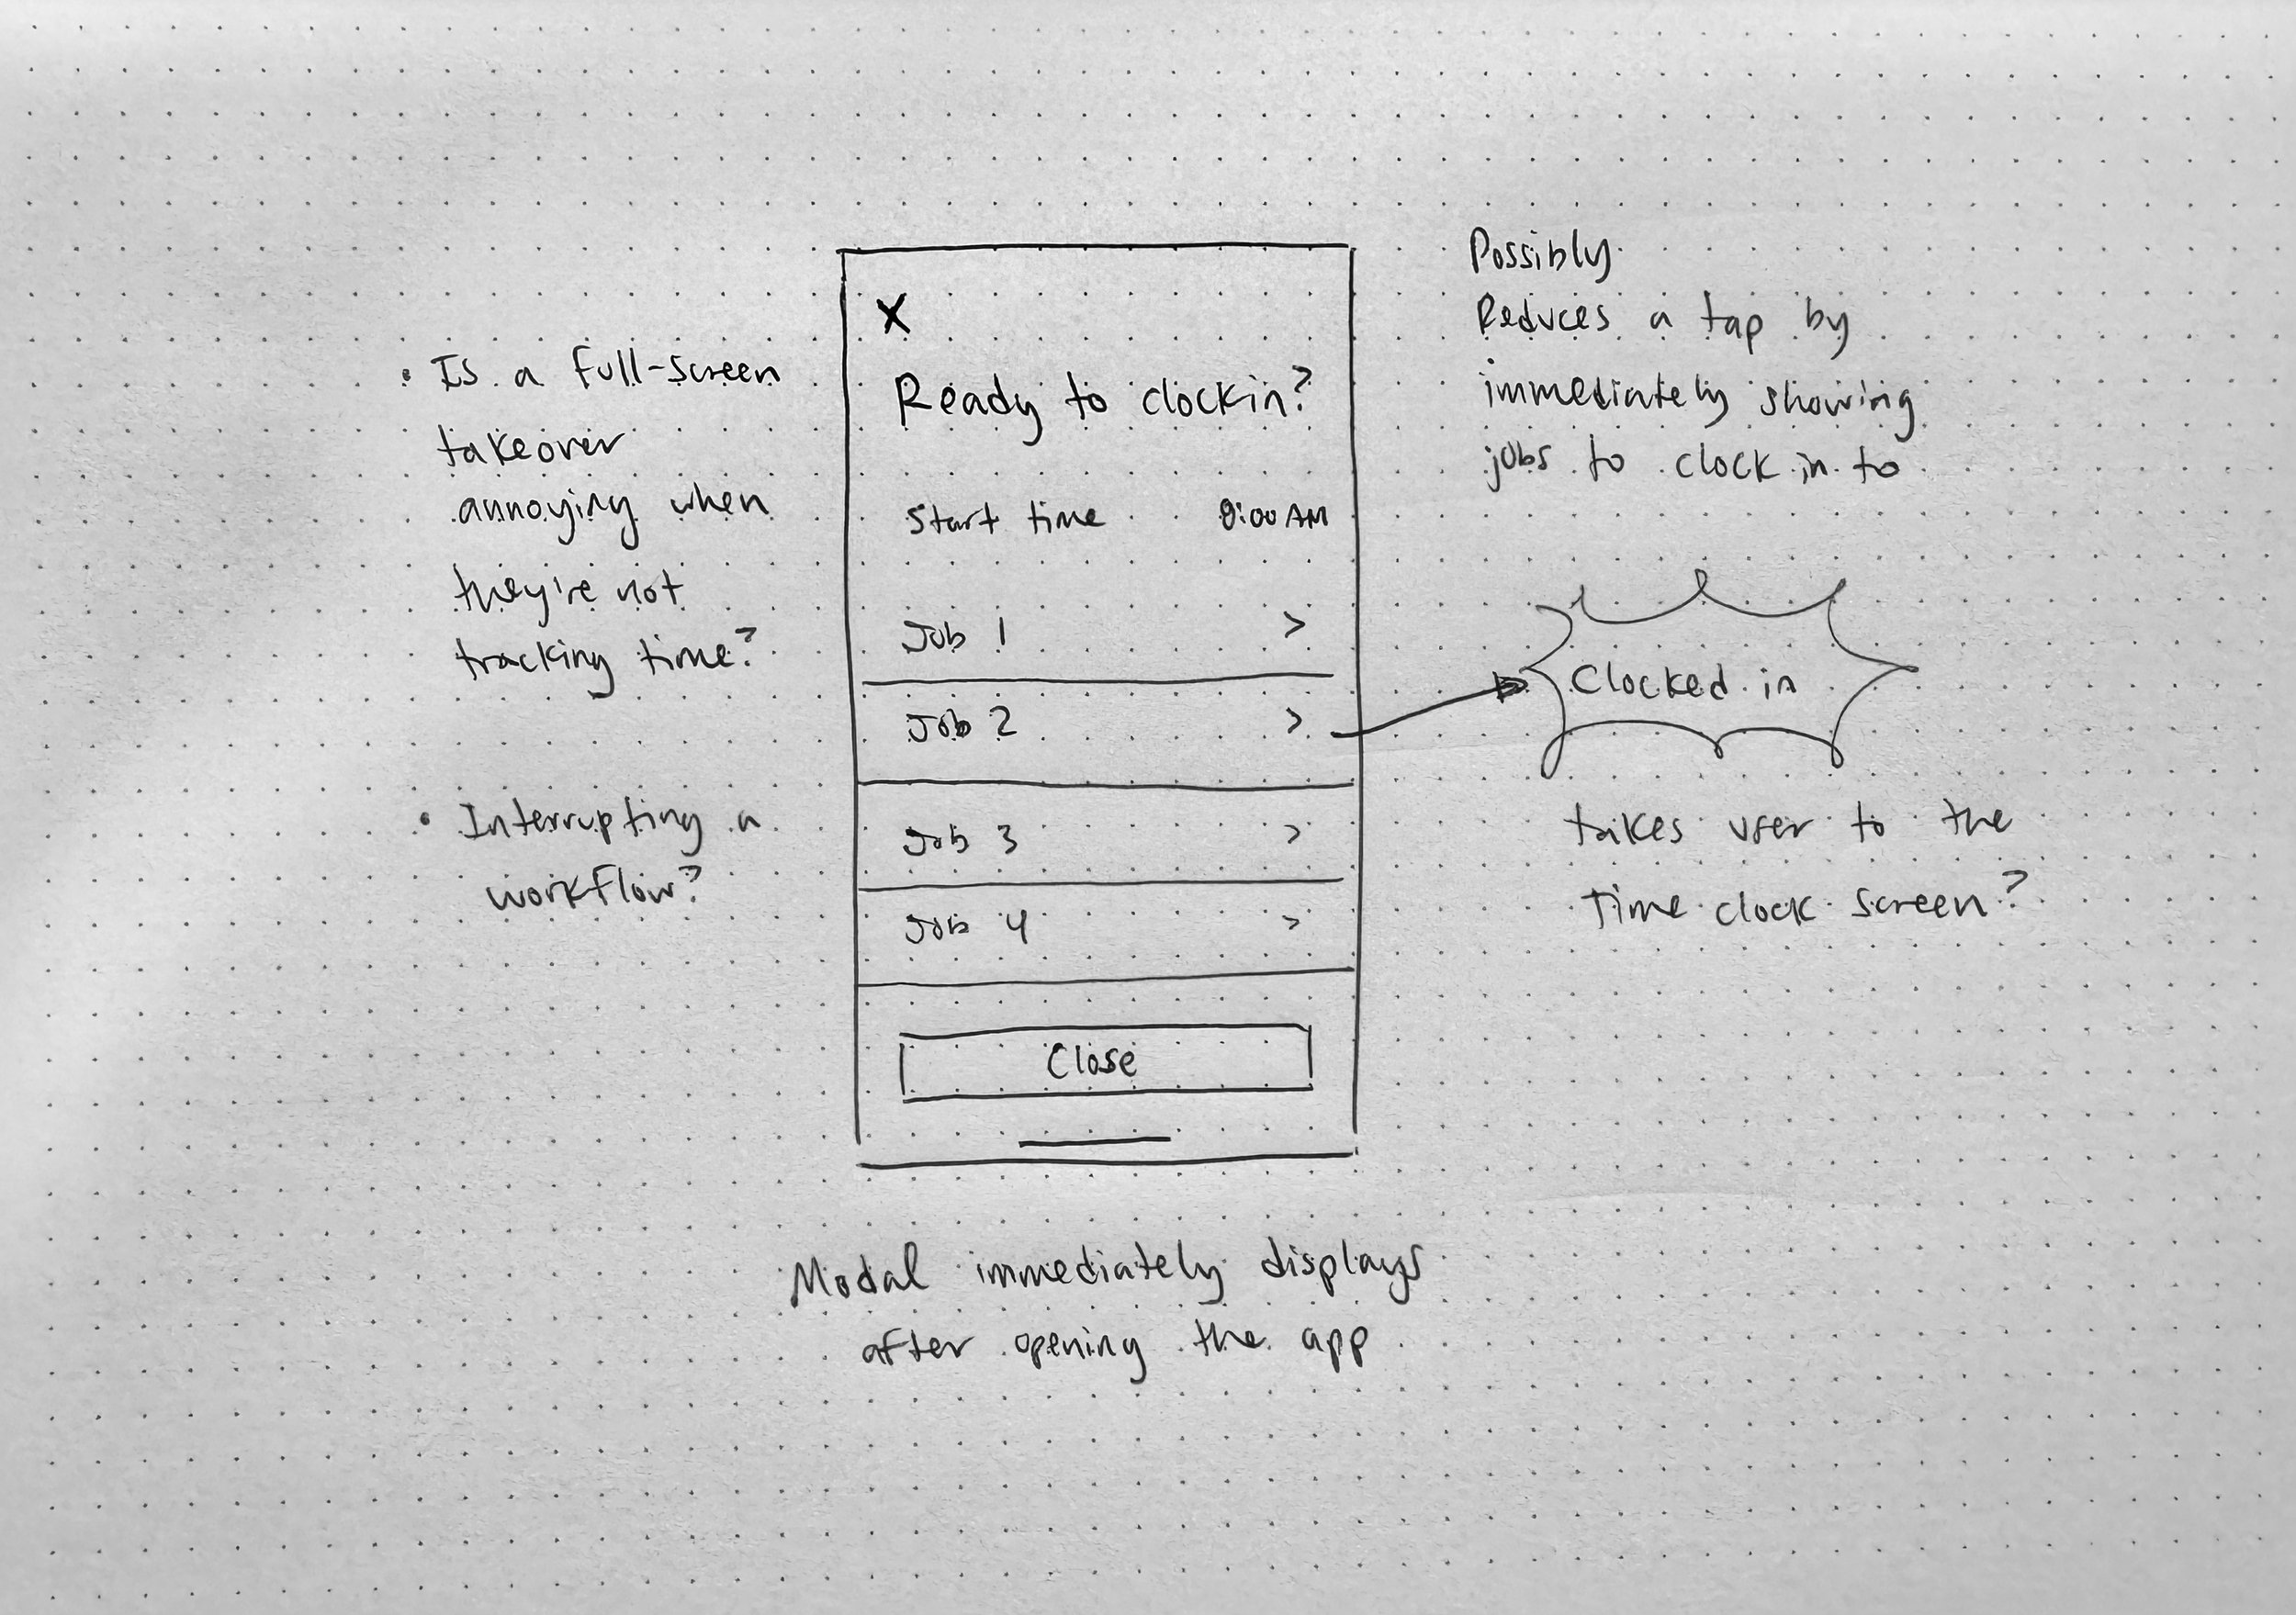 • Is a full-screen
takeover
annoying when
they're not
tracking time?
• Interrupting a
workflow?
X
Ready to clockin?
Start time 8:00 AM
Job 1 >
Job 2 >
Job 3 >
Job 4 >
Close
Possibly
Reduces a tap by
immediately showing
jobs to clock in to
Clocked in
takes user to the
Time clock screen?
Modal immediately displays
after opening the app